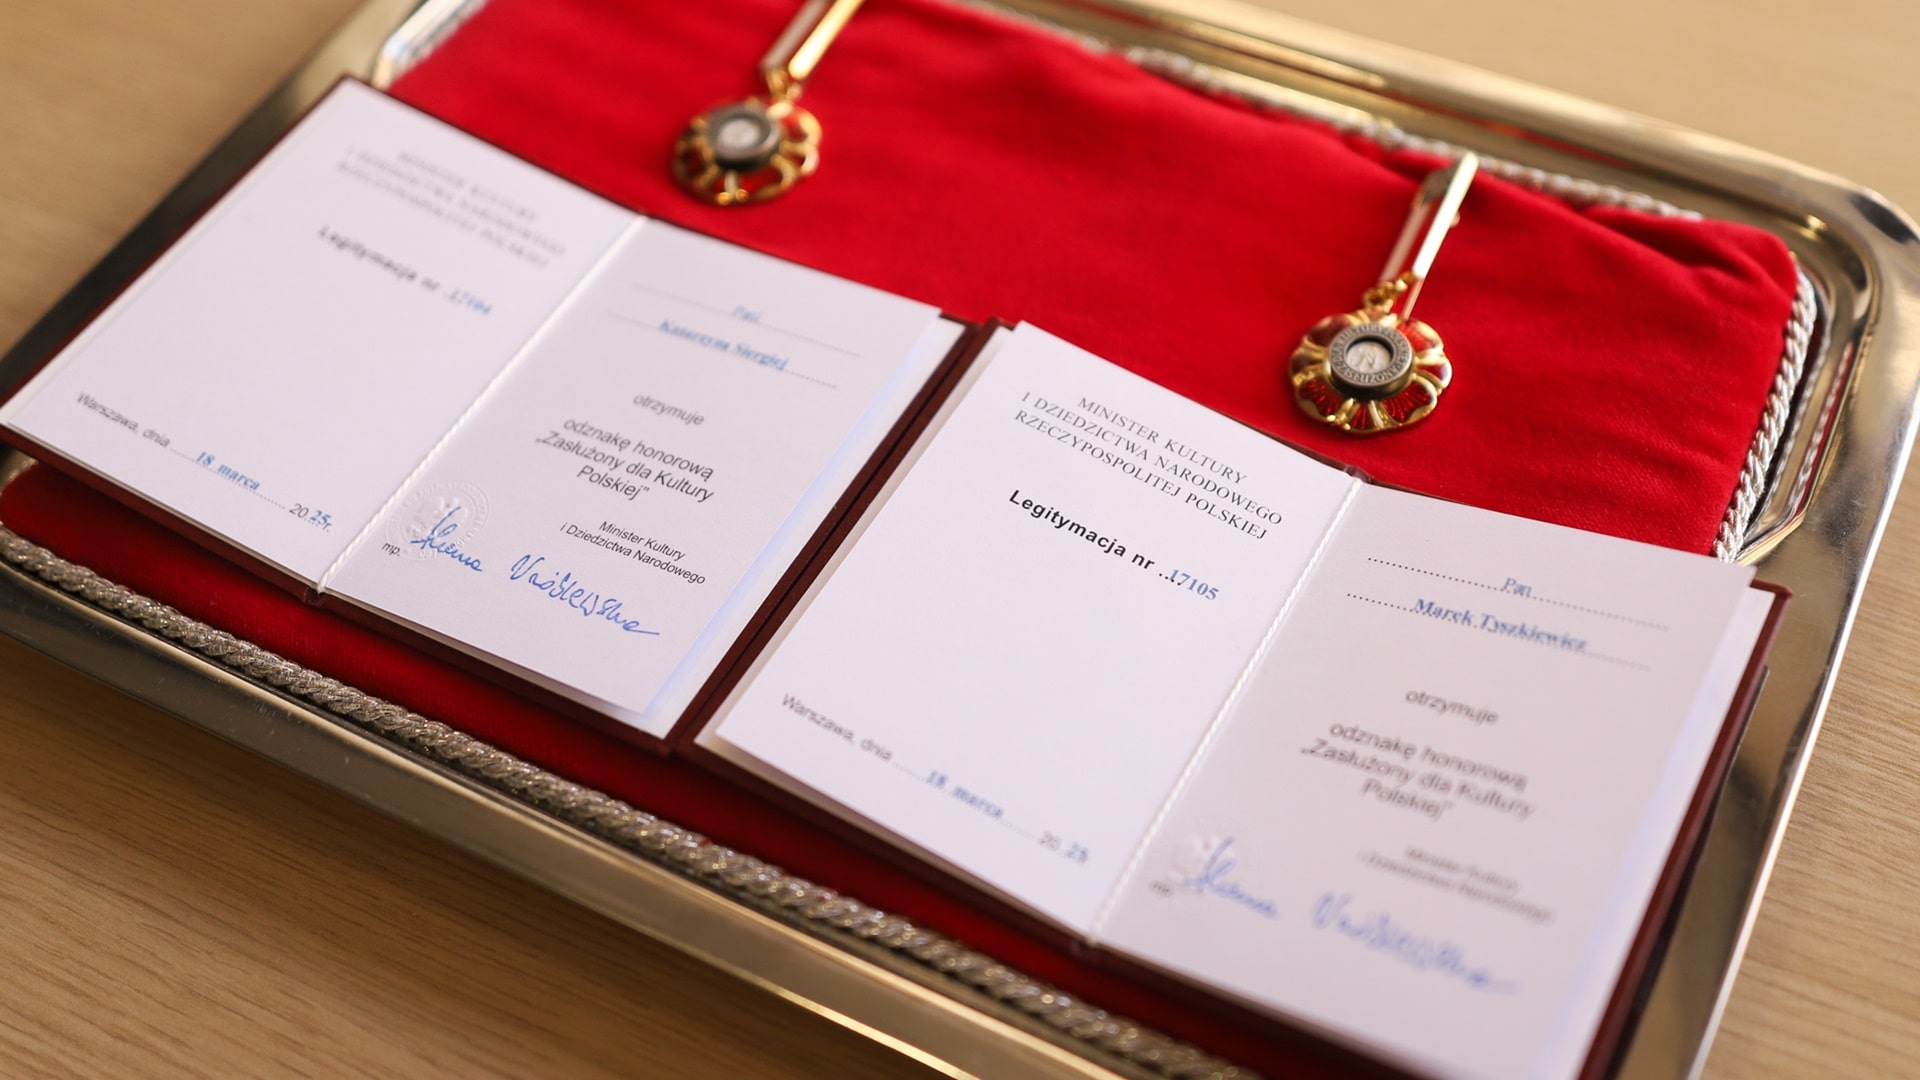 MINISTER KULTURY
I DZIEDZICTWA NARODOWEGO
RZECZYPOSPOLITEJ POLSKIEJ
Legitymacja nr 17104
Warszawa, dnia 18 marca 2025r.
Pani
Katarzyna Siergiej
otrzymuje
odznakę honorową
„Zasłużony dla Kultury
Polskiej”
Minister Kultury
i Dziedzictwa Narodowego
mp.
Hanna Wróblewska
MINISTER KULTURY
I DZIEDZICTWA NARODOWEGO
RZECZYPOSPOLITEJ POLSKIEJ
Legitymacja nr 17105
Warszawa, dnia 18 marca 2025
Pan
Marek Tyszkiewicz
otrzymuje
odznakę honorową
„Zasłużony dla Kultury
Polskiej”
Minister Kultury
i Dziedzictwa Narodowego
mp.
Hanna Wróblewska